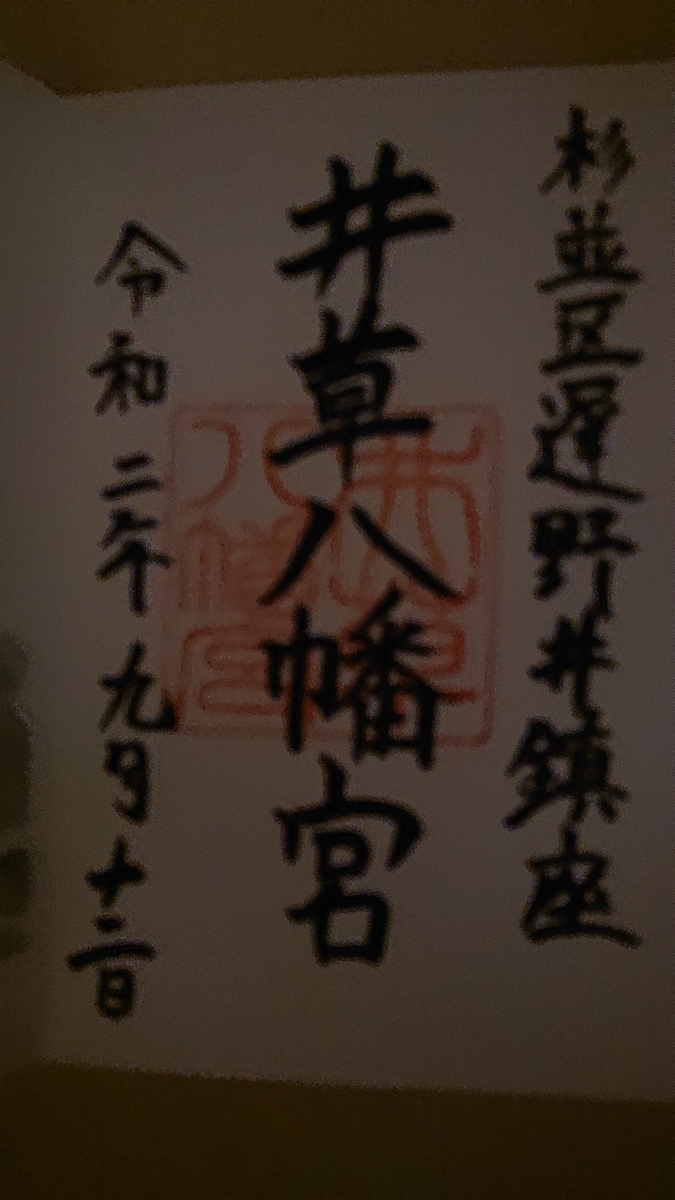 杉並区遅野井鎮座
井草八幡宮
令和二年九月十二日
井草八幡宮